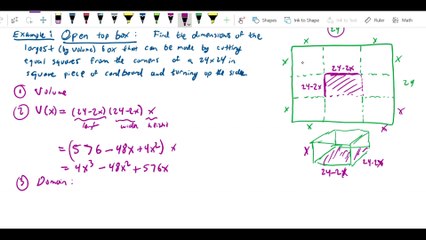 Example: Open top box: Find the dimensions of the
largest (by volume) box that can be made by cutting
equal squares from the corners of a 24x24 in
square piece of cardboard and turning up the sides
① Volume
② V(x) = (24-2x)(24-2x) x
left width height
= (576 - 48x + 4x²) x
= 4x³ - 48x² + 576x
③ Domain:
24
x x
24-2x
24-2x
24
x x
x x
x
24-2x
24-2x